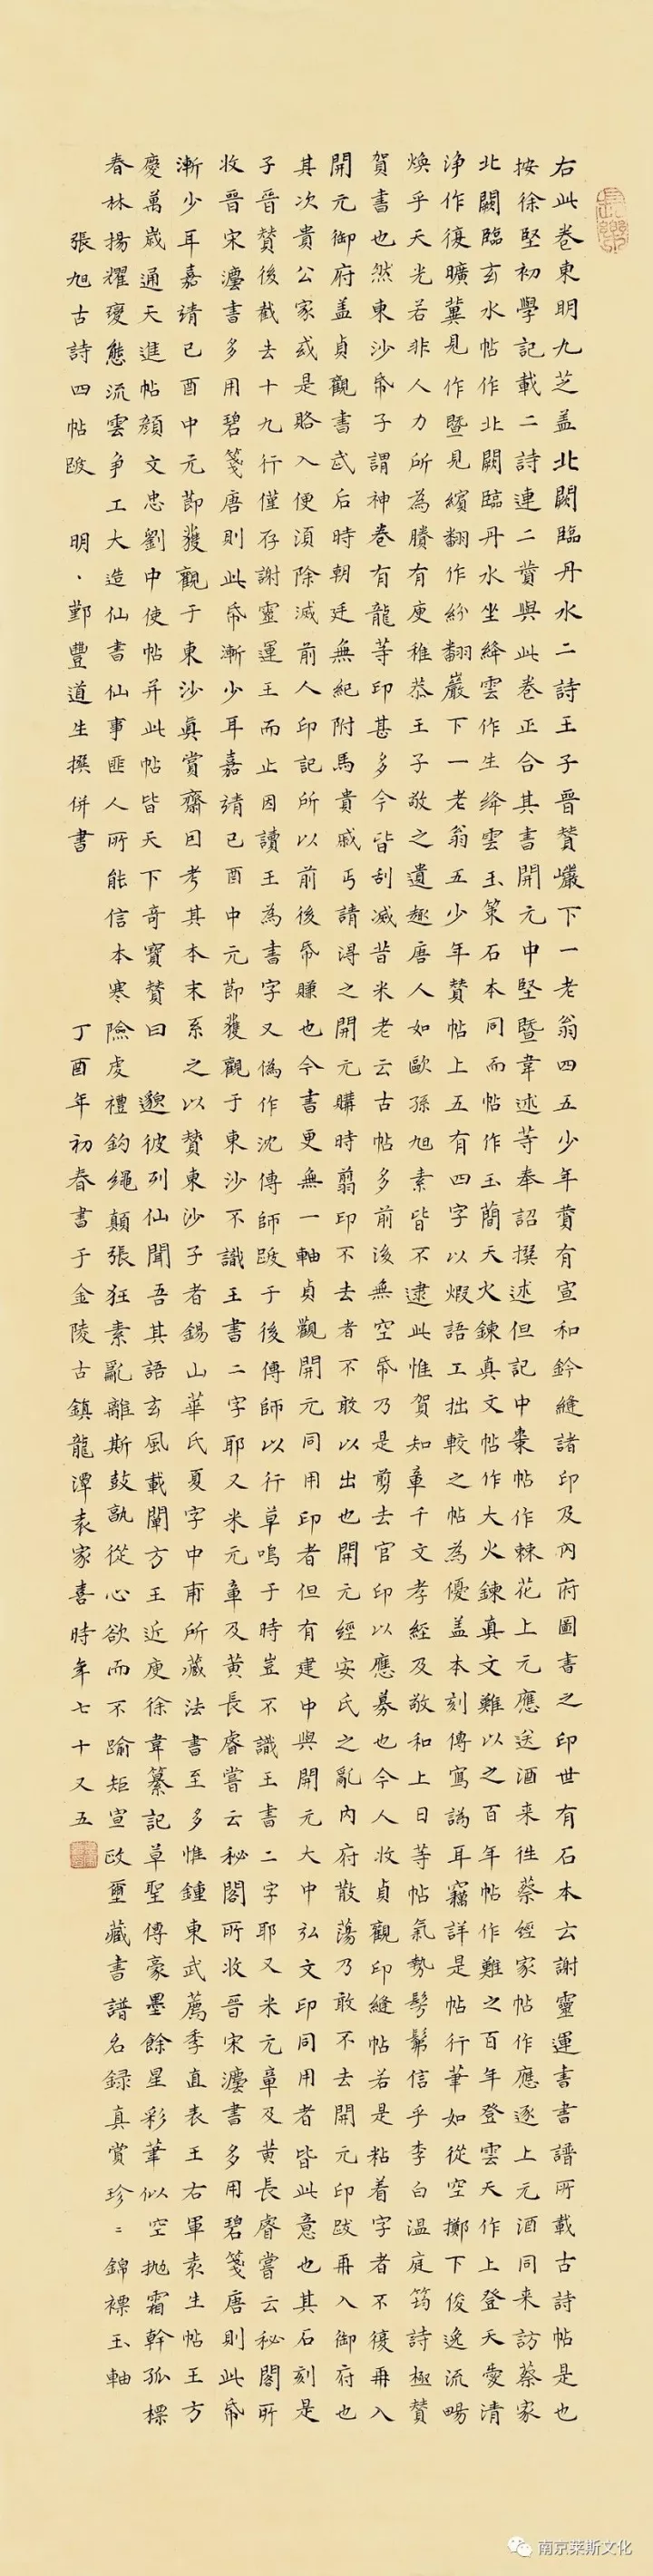 右此卷東明九芝盖北闕臨丹水二詩王子晉贊巖下一老翁四五少年贊有宣和鈐縫諸印及內府圖書之印世有石本云謝靈運書書譜所載古詩帖是也
按徐堅初學記載二詩連二贊與此卷正合其書開元中堅暨韋述等奉詔撰述但記中棗帖作棘花上元應送酒来往蔡經家帖作應逐上元酒同来訪蔡家
北闕臨玄水帖作北闕臨丹水坐絳雲作生絳雲玉策石本同而帖作玉蕳天火鍊真文帖作大火鍊真文難以之百年帖作難之百年登雲天作上登天愛清
浄作復曠冀見作暨見繽翻作紛翻巖下一老翁五少年贊帖上五有四字以煆語工拙較之帖為優盖本刻傳寫訛耳竊詳是帖行筆如從空擲下俊逸流暢
煥乎天光若非人力所為賸有庾稚恭王子敬之遺趣唐人如歐孫旭素皆不逮此惟賀知章千文孝經及敬和上日等帖氣勢髣髴信乎李白温庭筠詩極贊
賀書也然東沙帋子謂神卷有龍等印甚多今皆刮滅昔米老云古帖多前後無空帋乃是剪去官印以應募也今人收貞觀印縫帖若是粘着字者不復再入
開元御府盖貞觀書武后時朝廷無紀附馬貴戚丐請得之開元購時翦印不去者不敢以出也開元經安氏之亂內府散蕩乃敢不去開元印跋再入御府也
其次貴公家或是賂入便須除滅前人印記所以前後帋賺也今書更無一軸貞觀開元同用印者但有建中與開元大中弘文印同用者皆此意也其石刻是
子晉贊後截去十九行僅存謝靈運王而止因讀王為書字又偽作沈傳師跋于後傳師以行草鳴于時豈不識王書二字耶又米元章及黄長睿嘗云秘閣所
收晉宋灋書多用碧箋唐則此帋漸少耳嘉靖己酉中元節獲觀于東沙不識王書二字耶又米元章及黄長睿嘗云秘閣所收晉宋灋書多用碧箋唐則此帋
漸少耳嘉靖己酉中元節獲觀于東沙真賞齋因考其本末系之以贊東沙子者錫山華氏夏字中甫所藏法書至多惟鍾東武薦季直表王右軍袁生帖王方
慶萬歲通天進帖顏文忠劉中使帖并此帖皆天下奇寶贊曰 邈彼列仙聞吾其語玄風載闡方王近庾徐韋纂記草聖傳豪墨餘星彩筆似空抛霜幹孤標
春林揚耀夐態流雲爭工大造仙書仙事匪人所能信本寒險虔禮鈎繩顛張狂素亂離斯鼓孰從心欲而不踰矩宣政璽藏書譜名録真賞珍〻錦褾玉軸
張旭古詩四帖跋 明·鄞豐道生撰併書 丁酉年初春書于金陵古鎮龍潭袁家喜時年七十又五
南京莱斯文化